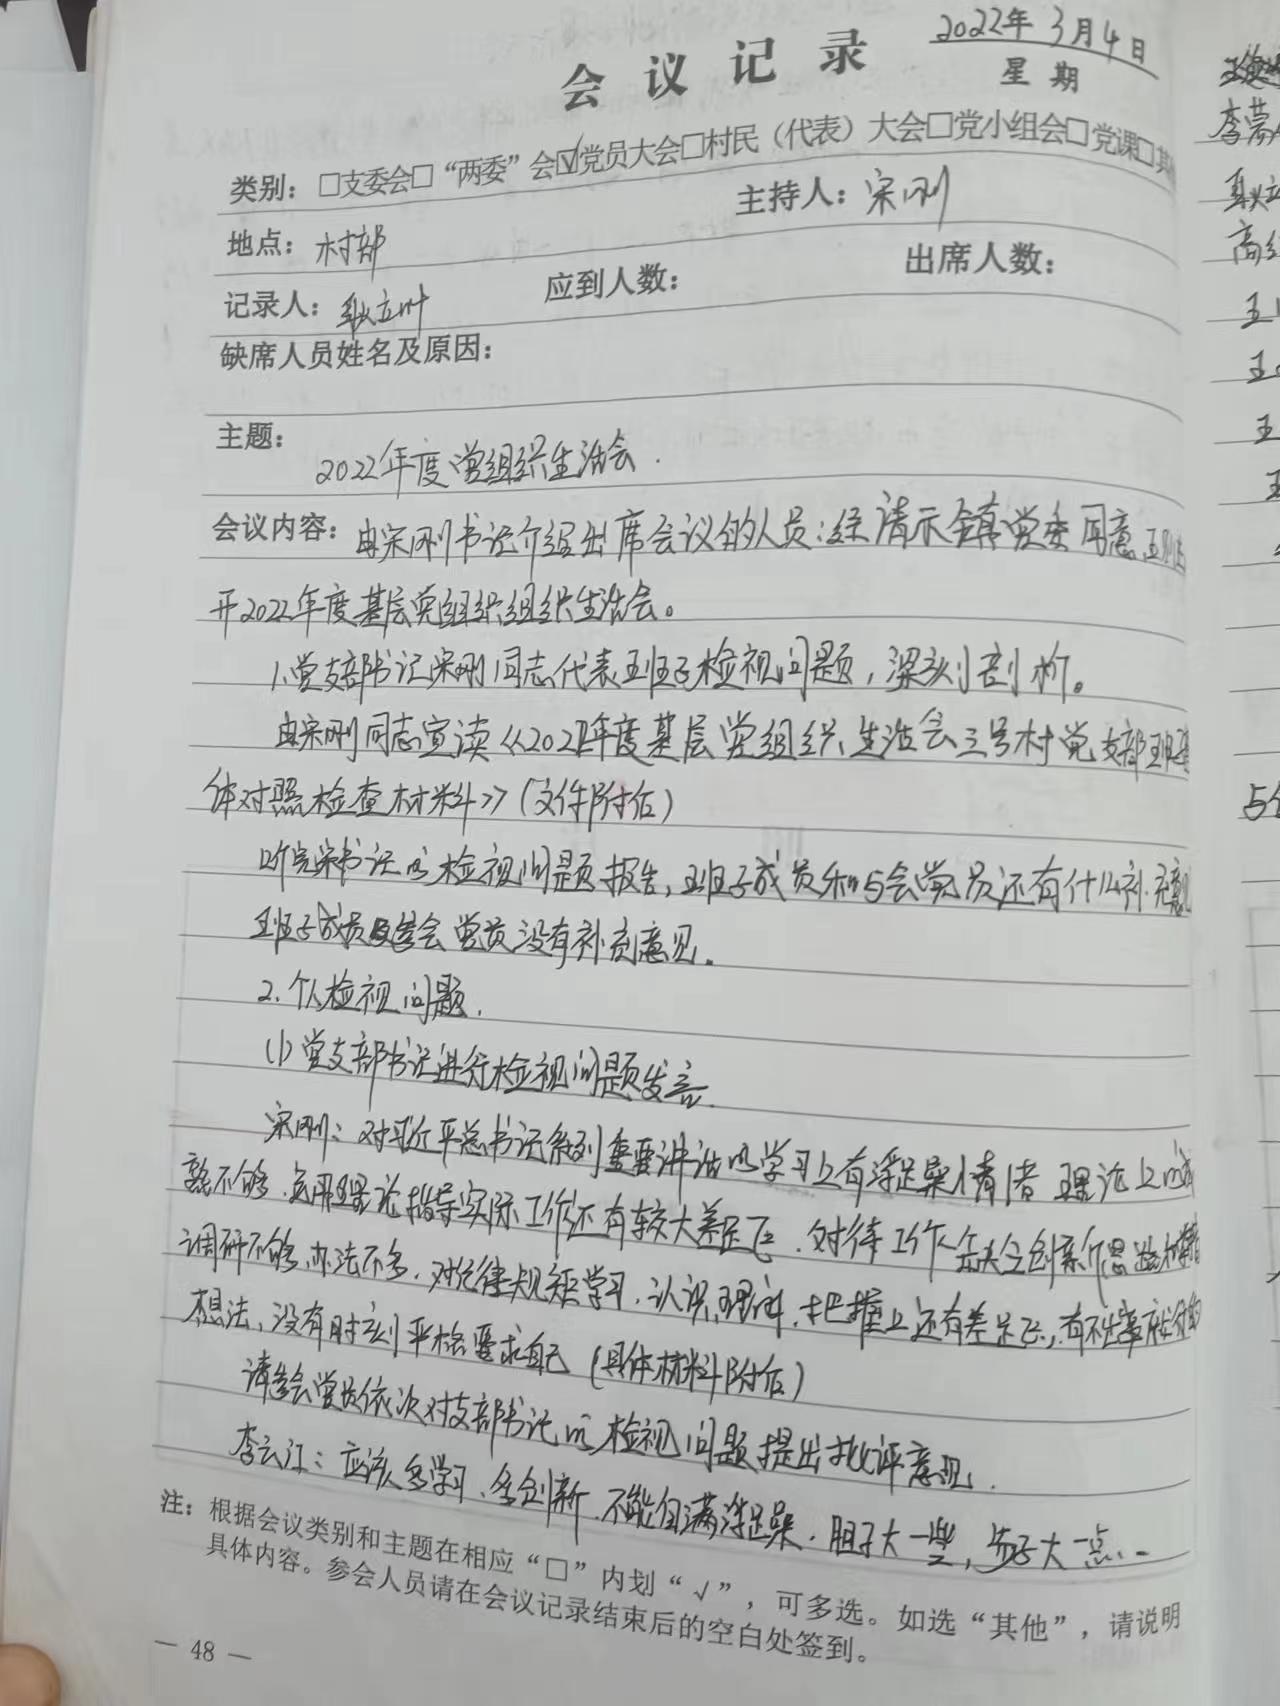 2022年3月4日
会议记录
星期
类别：□支委会□“两委”会☑党员大会□村民（代表）大会□党小组会□党课□其
地点：村部
主持人：宋刚
记录人：耿立叶
应到人数：
出席人数：
缺席人员姓名及原因：
主题：
2022年度党组织生活会.
会议内容：由宋刚书记介绍出席会议的人员；经请示镇党委同意,
开2022年度基层党组织组织生活会。
1、党支部书记宋刚同志代表班子检视问题，深刻剖析。
由宋刚同志宣读《2021年度基层党组织生活会三号村党支部班
体对照检查材料》（文件附后）
听完宋书记的检视问题报告,班子成员和与会党员还有什么补充意见
班子成员及参会党员没有补充意见。
2、个人检视问题.
(1)党支部书记进行检视问题发言.
宋刚：对习近平总书记系列重要讲话的学习上有浮躁情绪 理论上的成
熟不够、运用理论指导实际工作还有较大差距、对待工作缺乏创新思路
调研不够,办法不多,对纪律规矩学习、认识、理解、把握上还有差距,有不出事
想法、没有时刻严格要求自己（具体材料附后）
请参会党员依次对支部书记的检视问题提出批评意见.
李云江：应该多学习、多创新、不能自满浮躁、胆子大一些，步子大一点..
注：根据会议类别和主题在相应“□”内划“√”，可多选。如选“其他”，请说明
具体内容。参会人员请在会议记录结束后的空白处签到。
— 48 —